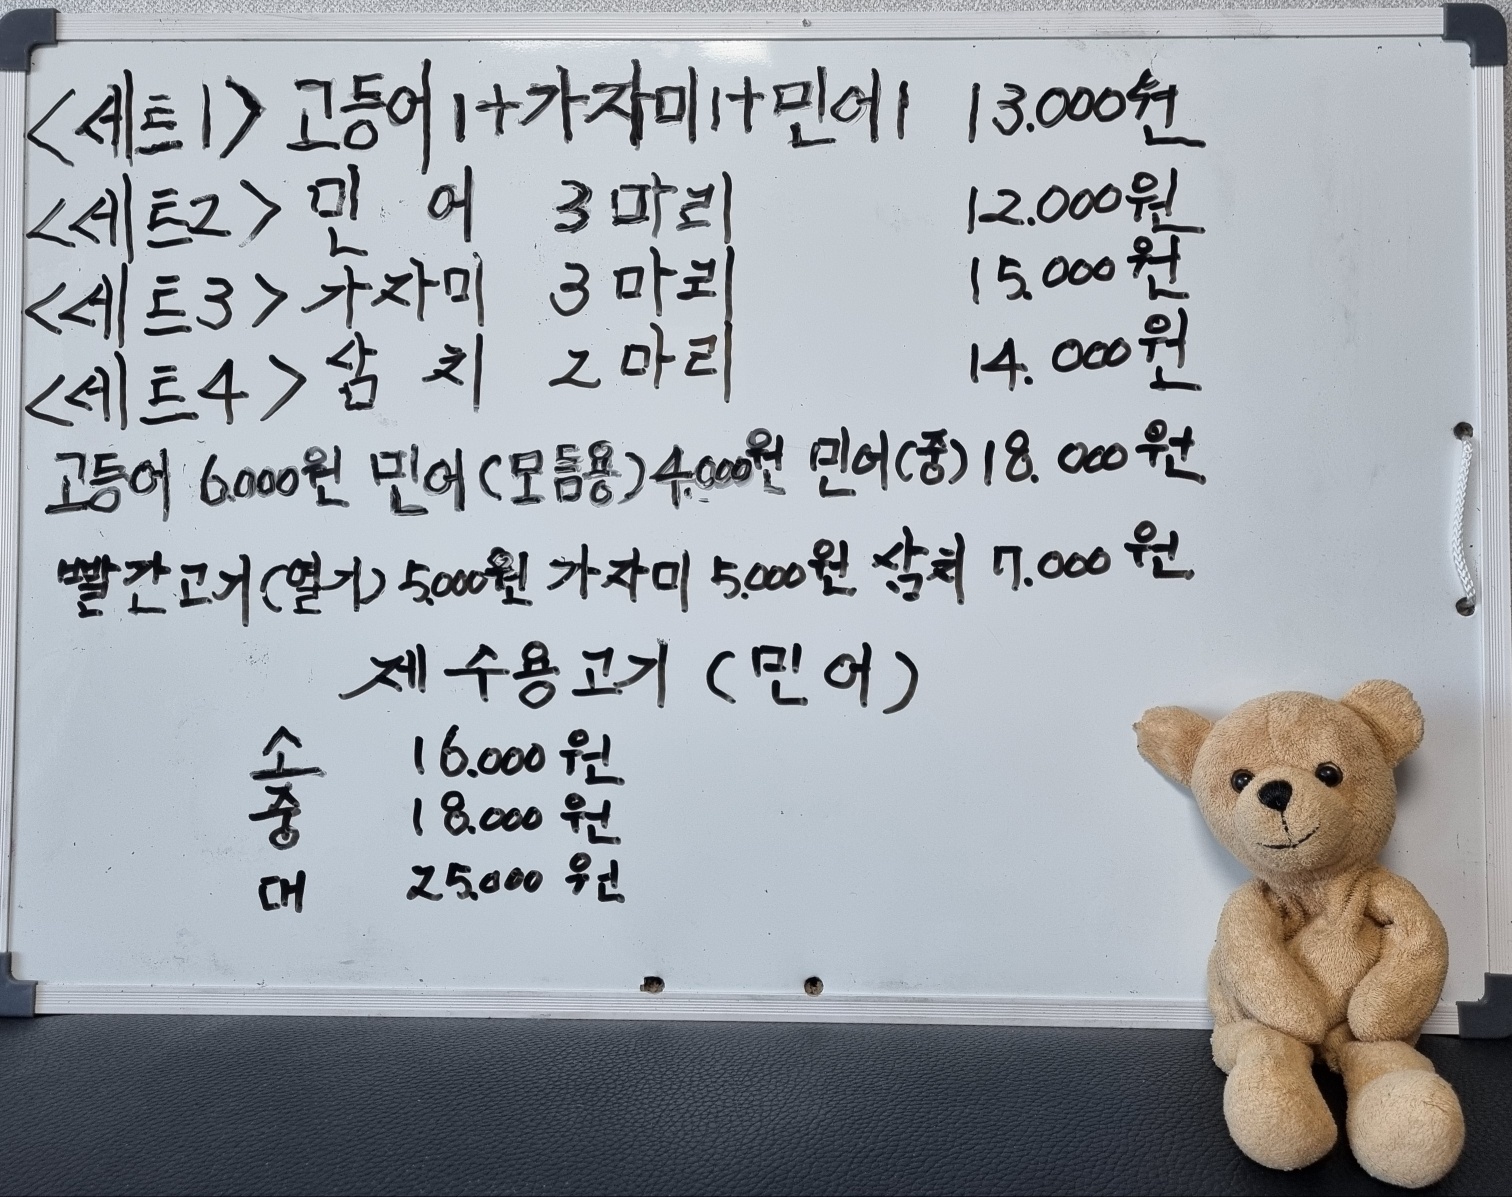 <세트1> 고등어1+가자미1+민어1 13.000원
<세트2> 민어 3마리 12.000원
<세트3> 가자미 3마리 15.000원
<세트4> 삼치 2마리 14.000원
고등어 6.000원 민어(모듬용)4.000원 민어(중)18.000원
빨간고기(열기) 5.000원 가자미 5.000원 삼치 7.000원
제수용고기(민어)
소 16.000원
중 18.000원
대 25.000원